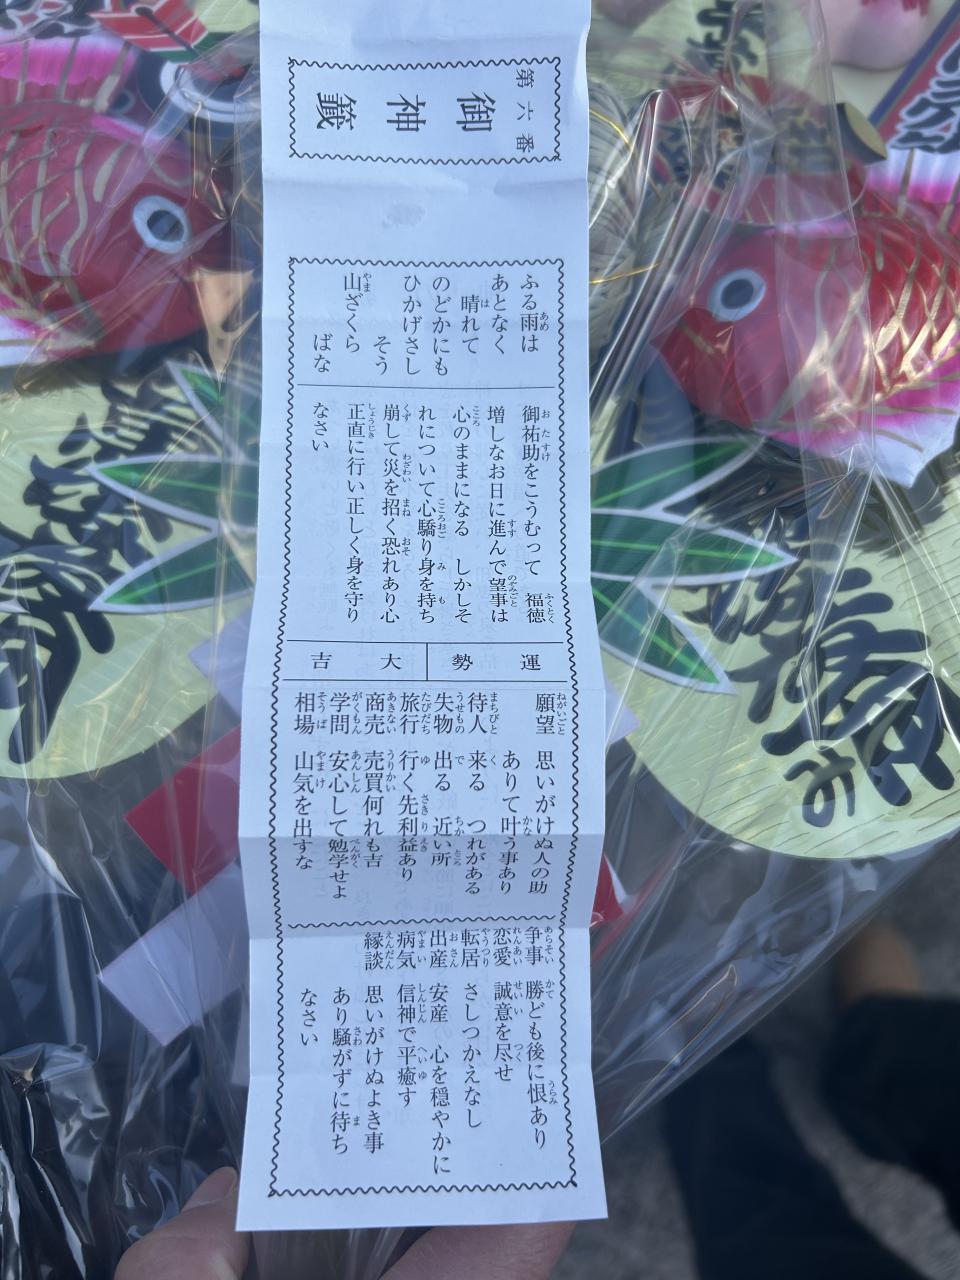 第六番
御神籤
ふる雨は
あとなく
晴れて
のどかにも
ひかげさし
そう
山ざくら
ばな
御祐助をこうむって 福徳
増しなお日に進んで望事は
心のままになる しかしそ
れについて心驕り身を持ち
崩して災を招く恐れあり心
正直に行い正しく身を守り
なさい
運勢
大吉
願望 思いがけぬ人の助
ありて叶う事あり
待人 来る つれがある
失物 出る 近い所
旅行 行く先利益あり
商売 売買何れも吉
学問 安心して勉学せよ
相場 山気を出すな
争事 勝ども後に恨あり
恋愛 誠意を尽せ
転居 さしつかえなし
出産 安産 心を穏やかに
病気 信神で平癒す
縁談 思いがけぬよき事
あり騒がずに待ち
なさい